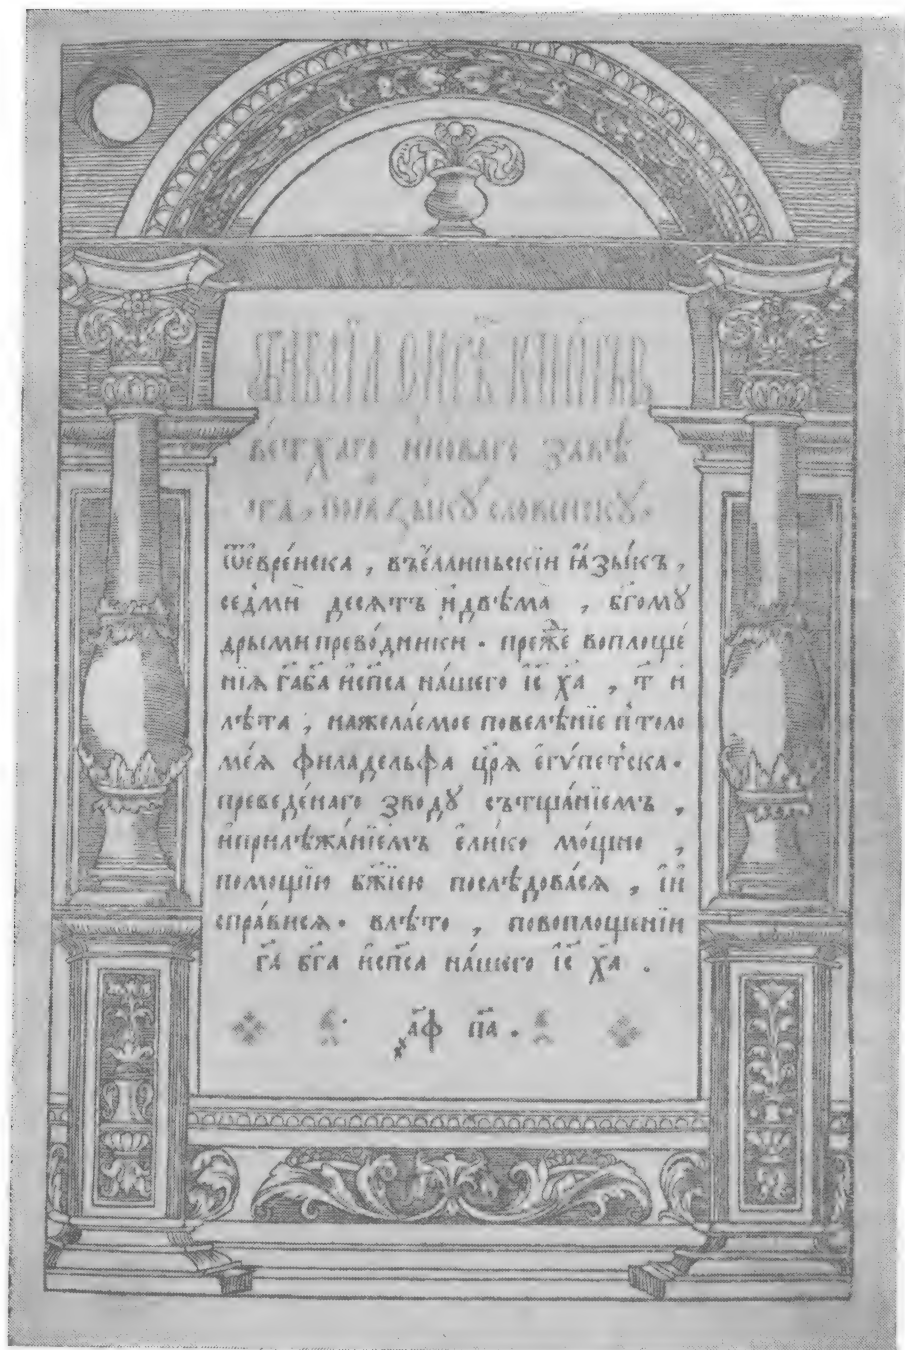 БИБЛІА СИРѢЧ КНИГЫ
ве́тхаго и҆новаго завѣ
та, поꙗзы́кꙋ словенскꙋ.
ѿевре́йска, въе́ллиньскїй ꙗ҆зы́къ,
се́дмй десѧтъ и҆двѣма̀, бг҃омꙋ
дрыми прево́дники. пре́жⷣе воплоще́
нїѧ гⷭ҇а бг҃а и҆сп҃са на́шего і҆с҃ х҃а, т҃ и
лѣ́та, нажела́емое повелѣ́нїе п̾толо
ме́ѧ филаде́льфа цр҃ѧ є҆гѵ́пет̾ска.
преведе́наго зводꙋ сътща́нїемъ,
и҆прилѣжа́нїемъ є҆ли́ко мо́щно,
помощїю бж҃їею послѣдова́сѧ, и҆и҆
спра́висѧ. влѣ́то, повоплоще́нїи
гⷭ҇а бг҃а и҆сп҃са на́шего і҆с҃ х҃а.
҂а҃ф п҃а.